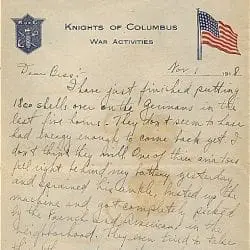 KNIGHTS OF COLUMBUS
WAR ACTIVITIES
Nov 1 1918
Dear Bess:
I have just finished putting
1800 shells over on the Germans in the
last five hours. They don't seem to have
had energy enough to come back yet. I
don't think they will. One of their aviators
fell right behind my Battery yesterday
and sprained his ankle, busted up the
machine and got completely picked
by the French and Americans in the
neighborhood. They even tried to take